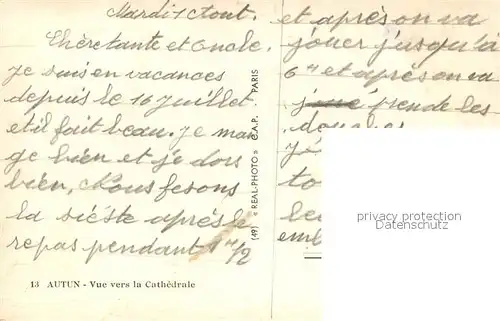 Mardi 1 Aout.
Chère tante et Oncle.
Je suis en vacances
depuis le 16 juillet.
et il fait beau. Je man
ge bien et je dors
bien, Nous fesons
la siéste aprés le
repas pendant 1 H 1/2
13 AUTUN - Vue vers la Cathédrale
(49) « REAL-PHOTO » C.A.P. PARIS
et aprés on va
jouer jusqu'à
6 H et aprés on va
prende les
douches
privacy protection
www.oldthing.de